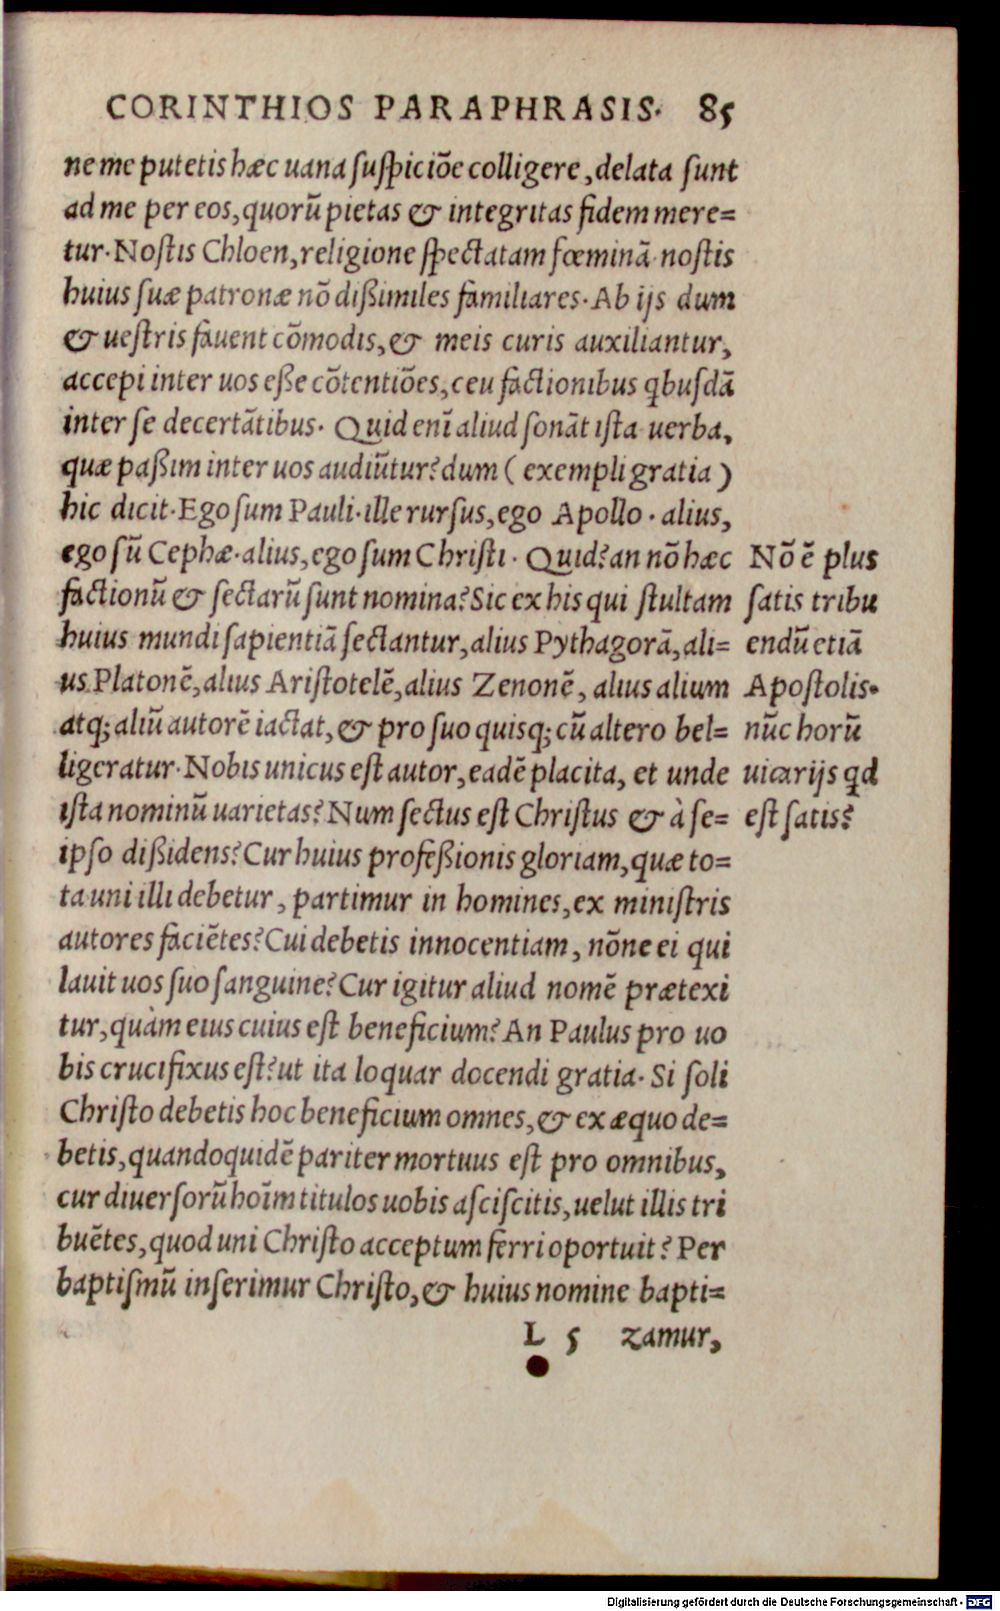 CORINTHIOS PARAPHRASIS. 85
ne me putetis hæc uana suspiciõe colligere, delata sunt
ad me per eos, quorũ pietas & integritas fidem mere=
tur. Nostis Chloen, religione spectatam fœminã nostis
huius suæ patronæ nõ dißimiles familiares. Ab ijs dum
& uestris fauent cõmodis, & meis curis auxiliantur,
accepi inter uos eße cõtentiões, ceu factionibus qbusdã
inter se decertãtibus. Quid enĩ aliud sonãt ista uerba,
quæ paßim inter uos audiũtur? dum ( exempli gratia )
hic dicit. Ego sum Pauli. ille rursus, ego Apollo. alius,
ego sũ Cephæ. alius, ego sum Christi. Quid? an nõ hæc
factionũ & sectarũ sunt nomina? Sic ex his qui stultam
huius mundi sapientiã sectantur, alius Pythagorã, ali=
us Platonẽ, alius Aristotelẽ, alius Zenonẽ, alius alium
atq; aliũ autorẽ iactat, & pro suo quisq; cũ altero bel=
ligeratur. Nobis unicus est autor, eadẽ placita, et unde
ista nominũ uarietas? Num sectus est Christus & à se=
ipso dißidens? Cur huius profeßionis gloriam, quæ to=
ta uni illi debetur, partimur in homines, ex ministris
autores faciẽtes? Cui debetis innocentiam, nõne ei qui
lauit uos suo sanguine? Cur igitur aliud nomẽ prætexi
tur, quàm eius cuius est beneficium? An Paulus pro uo
bis crucifixus est? ut ita loquar docendi gratia. Si soli
Christo debetis hoc beneficium omnes, & ex æquo de=
betis, quandoquidẽ pariter mortuus est pro omnibus,
cur diuersorũ hoĩm titulos uobis asciscitis, uelut illis tri
buẽtes, quod uni Christo acceptum ferri oportuit? Per
baptismũ inserimur Christo, & huius nomine bapti=
L 5 zamur,
Nõ ẽ plus
satis tribu
endũ etiã
Apostolis.
nũc horũ
uicarijs qd
est satis?
Digitalisierung gefördert durch die Deutsche Forschungsgemeinschaft - DFG